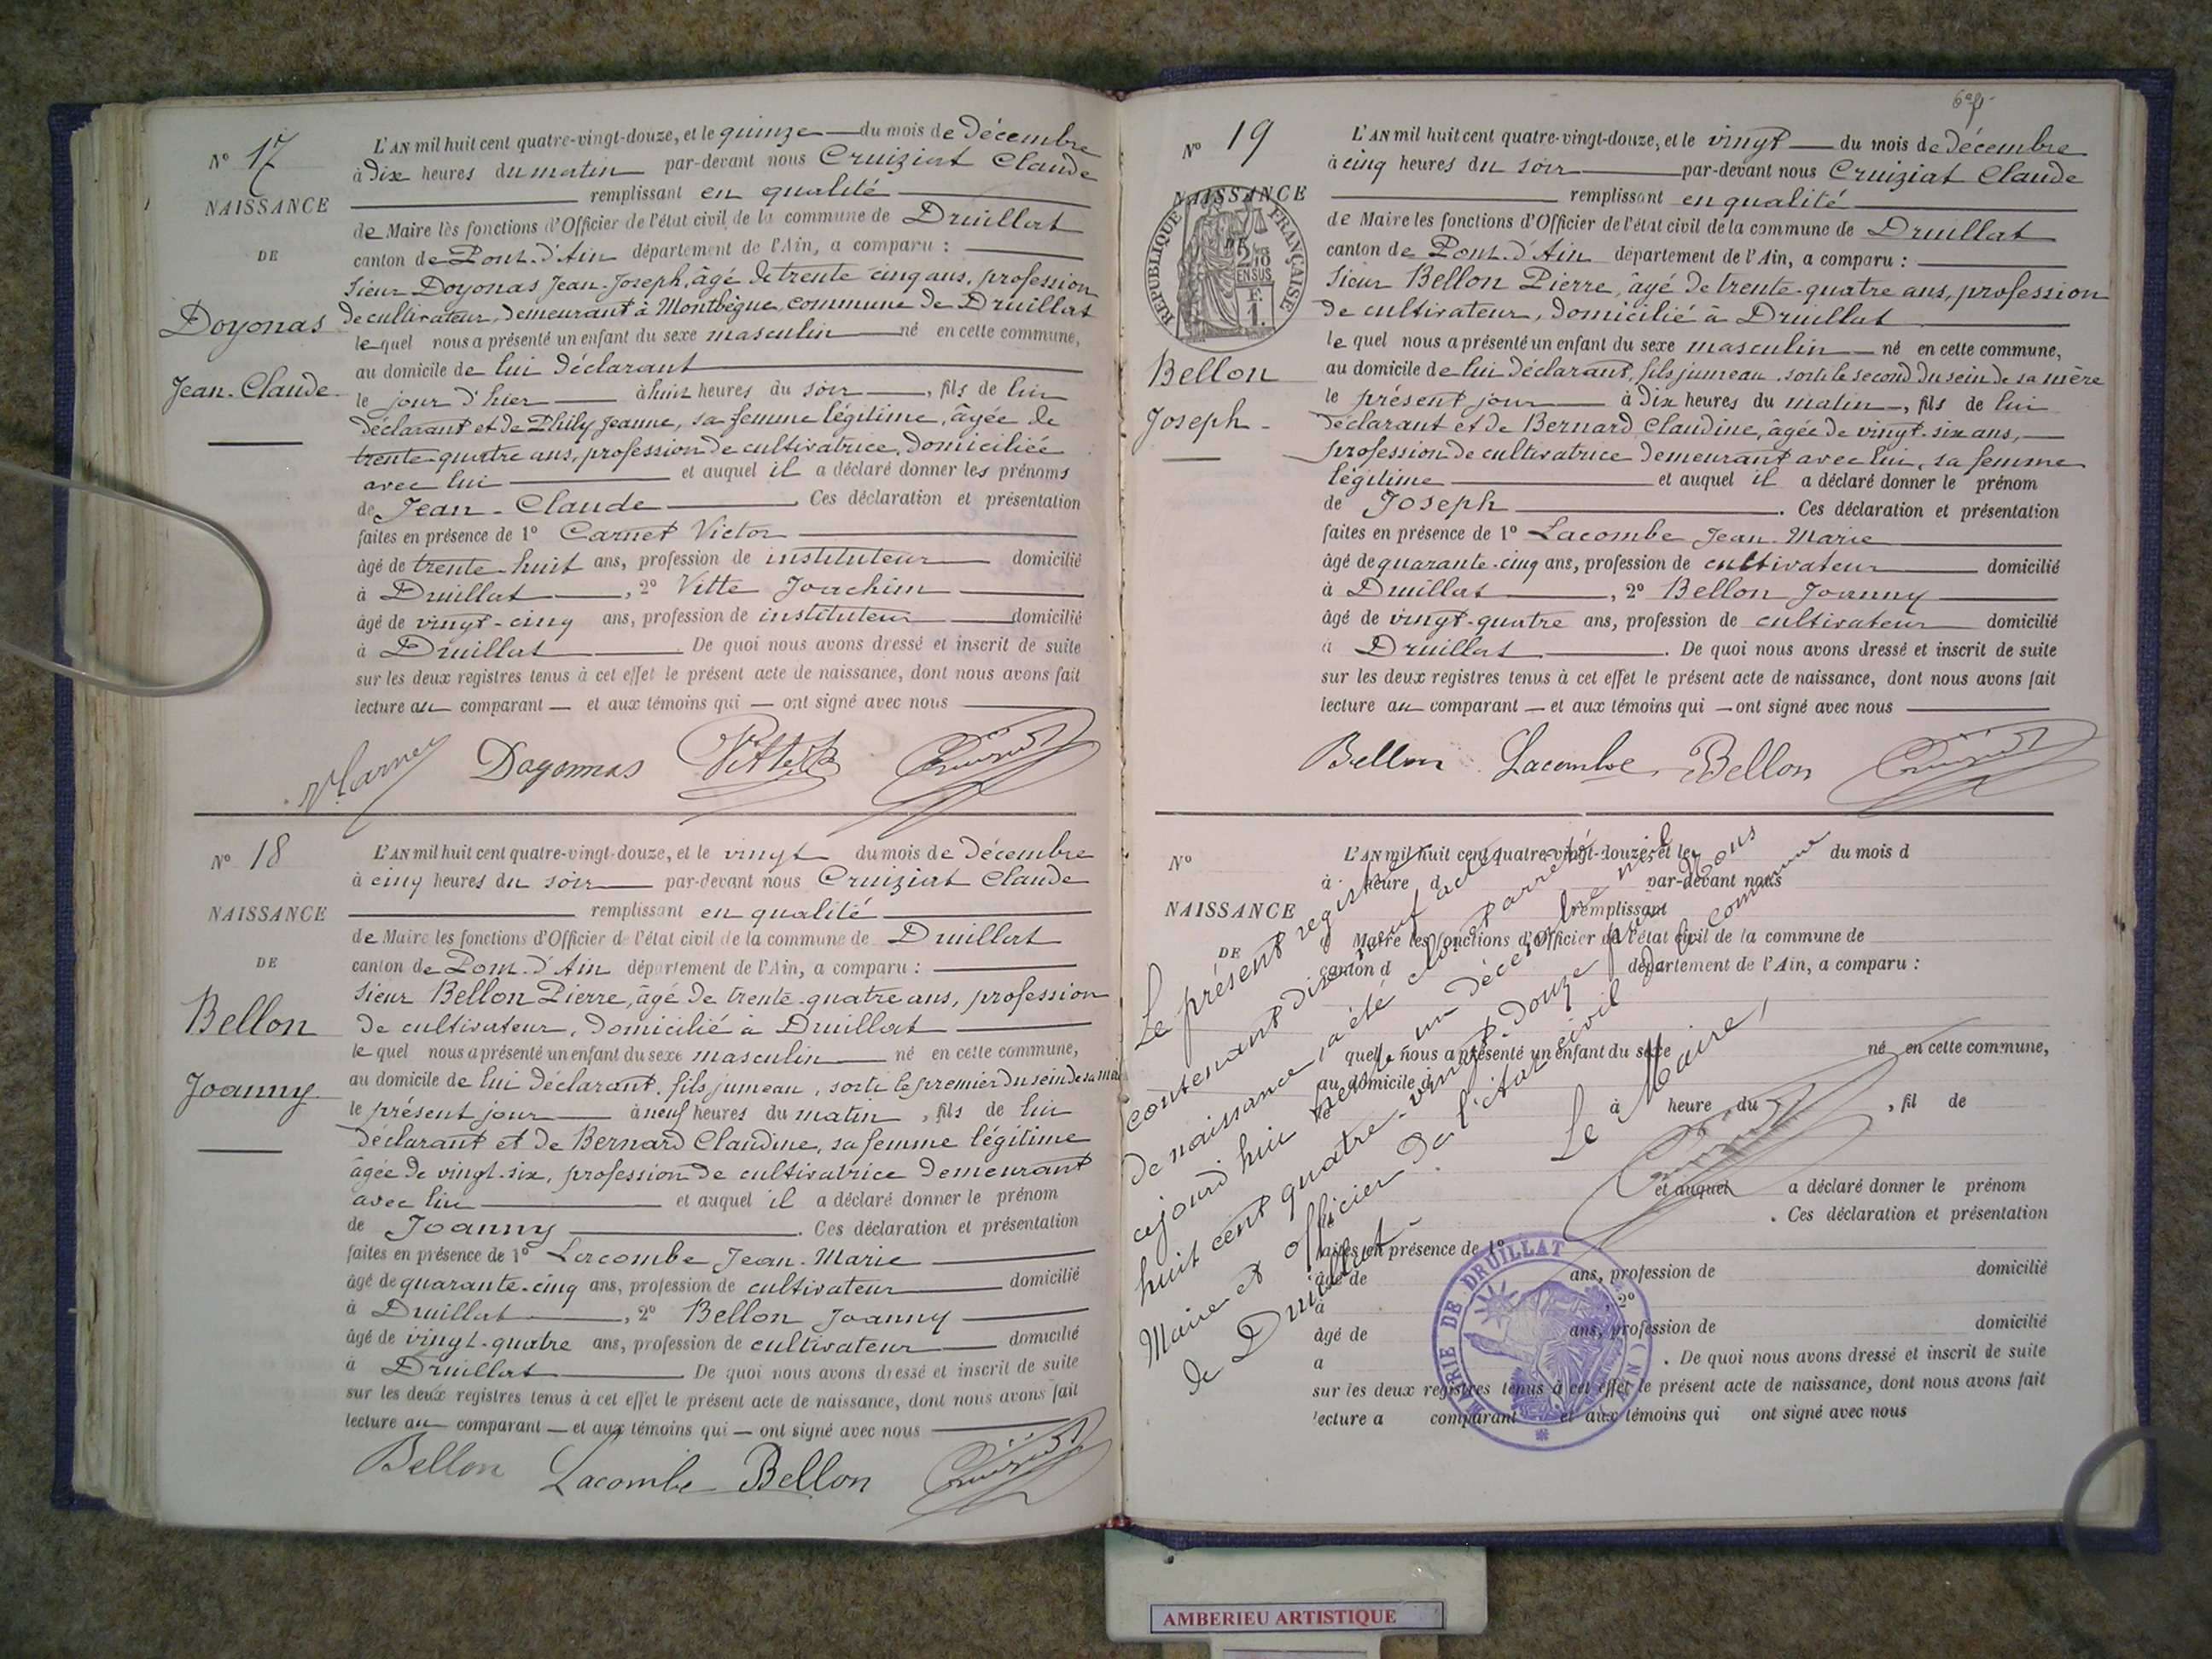 N° 17
NAISSANCE
DE
Doyonas
Jean-Claude
L'AN mil huit cent quatre-vingt-douze, et le quinze du mois de Décembre
à dix heures du matin par-devant nous Cruiziat Claude
remplissant en qualité
de Maire les fonctions d'Officier de l'état civil de la commune de Druillat
canton de Pont-d'Ain département de l'Ain, a comparu :
Sieur Doyonas Jean-Joseph, âgé de trente cinq ans, profession
de cultivateur, demeurant à Montbègue, commune de Druillat
lequel nous a présenté un enfant du sexe masculin né en cette commune,
au domicile de lui déclarant
le jour d'hier à huit heures du soir, fils de lui
déclarant et de Phily Jeanne, sa femme légitime, âgée de
trente-quatre ans, profession de cultivatrice, domiciliée
avec lui et auquel il a déclaré donner les prénoms
de Jean-Claude. Ces déclaration et présentation
faites en présence de 1° Carnet Victor
âgé de trente-huit ans, profession de instituteur domicilié
à Druillat, 2° Vitte Joachim
âgé de vingt-cinq ans, profession de instituteur domicilié
à Druillat De quoi nous avons dressé et inscrit de suite
sur les deux registres tenus à cet effet le présent acte de naissance, dont nous avons fait
lecture au comparant et aux témoins qui ont signé avec nous
V Carnet Dogonnas Vitte Cruiziat
N° 18
NAISSANCE
DE
Bellon
Joanny
L'AN mil huit cent quatre-vingt-douze, et le vingt du mois de Décembre
à cinq heures du soir par-devant nous Cruiziat Claude
remplissant en qualité
de Maire les fonctions d'Officier de l'état civil de la commune de Druillat
canton de Pont-d'Ain département de l'Ain, a comparu :
Sieur Bellon Pierre, âgé de trente-quatre ans, profession
de cultivateur, domicilié à Druillat
lequel nous a présenté un enfant du sexe masculin né en cette commune,
au domicile de lui déclarant, fils jumeau, sorti le premier du sein de sa mère
le présent jour à neuf heures du matin, fils de lui
déclarant et de Bernard Claudine, sa femme légitime
âgée de vingt-six, profession de cultivatrice demeurant
avec lui et auquel il a déclaré donner le prénom
de Joanny. Ces déclaration et présentation
faites en présence de 1° Lacombe Jean-Marie
âgé de quarante-cinq ans, profession de cultivateur domicilié
à Druillat, 2° Bellon Joanny
âgé de vingt-quatre ans, profession de cultivateur domicilié
à Druillat De quoi nous avons dressé et inscrit de suite
sur les deux registres tenus à cet effet le présent acte de naissance, dont nous avons fait
lecture au comparant et aux témoins qui ont signé avec nous
Bellon Lacombe Bellon Cruiziat
N° 19
NAISSANCE
DE
RÉPUBLIQUE FRANÇAISE
2/10 EN SUS
Bellon
Joseph
L'AN mil huit cent quatre-vingt-douze, et le vingt du mois de Décembre
à cinq heures du soir par-devant nous Cruiziat Claude
remplissant en qualité
de Maire les fonctions d'Officier de l'état civil de la commune de Druillat
canton de Pont-d'Ain département de l'Ain, a comparu :
Sieur Bellon Pierre, âgé de trente-quatre ans, profession
de cultivateur, domicilié à Druillat
lequel nous a présenté un enfant du sexe masculin né en cette commune,
au domicile de lui déclarant, fils jumeau, sorti le second du sein de sa mère
le présent jour à dix heures du matin, fils de lui
déclarant et de Bernard Claudine, âgée de vingt-six ans,
profession de cultivatrice demeurant avec lui, sa femme
légitime et auquel il a déclaré donner le prénom
de Joseph. Ces déclaration et présentation
faites en présence de 1° Lacombe Jean-Marie
âgé de quarante-cinq ans, profession de cultivateur domicilié
à Druillat, 2° Bellon Joanny
âgé de vingt-quatre ans, profession de cultivateur domicilié
à Druillat. De quoi nous avons dressé et inscrit de suite
sur les deux registres tenus à cet effet le présent acte de naissance, dont nous avons fait
lecture au comparant et aux témoins qui ont signé avec nous
Bellon Lacombe Bellon Cruiziat
N°
NAISSANCE
DE
L'AN mil huit cent quatre-vingt-douze, et le du mois d
à heure d par-devant nous
remplissant
d Maire les fonctions d'Officier de l'état civil de la commune de
canton d département de l'Ain, a comparu :
quel nous a présenté un enfant du sexe né en cette commune,
au domicile d
à heure du , fil de
et auquel a déclaré donner le prénom
. Ces déclaration et présentation
faites en présence de 1°
âgé de ans, profession de domicilié
à , 2°
âgé de ans, profession de domicilié
à . De quoi nous avons dressé et inscrit de suite
sur les deux registres tenus à cet effet le présent acte de naissance, dont nous avons fait
lecture a comparant et aux témoins qui ont signé avec nous
Le présent registre
contenant dix neuf actes
de naissance, a été clos et arrêté
cejourd'hui trente un décembre mil
huit cent quatre-vingt-douze par nous
Maire et officier de l'état civil de la commune
de Druillat
Le Maire,
Cruiziat
MAIRIE DE DRUILLAT (AIN)
AMBERIEU ARTISTIQUE